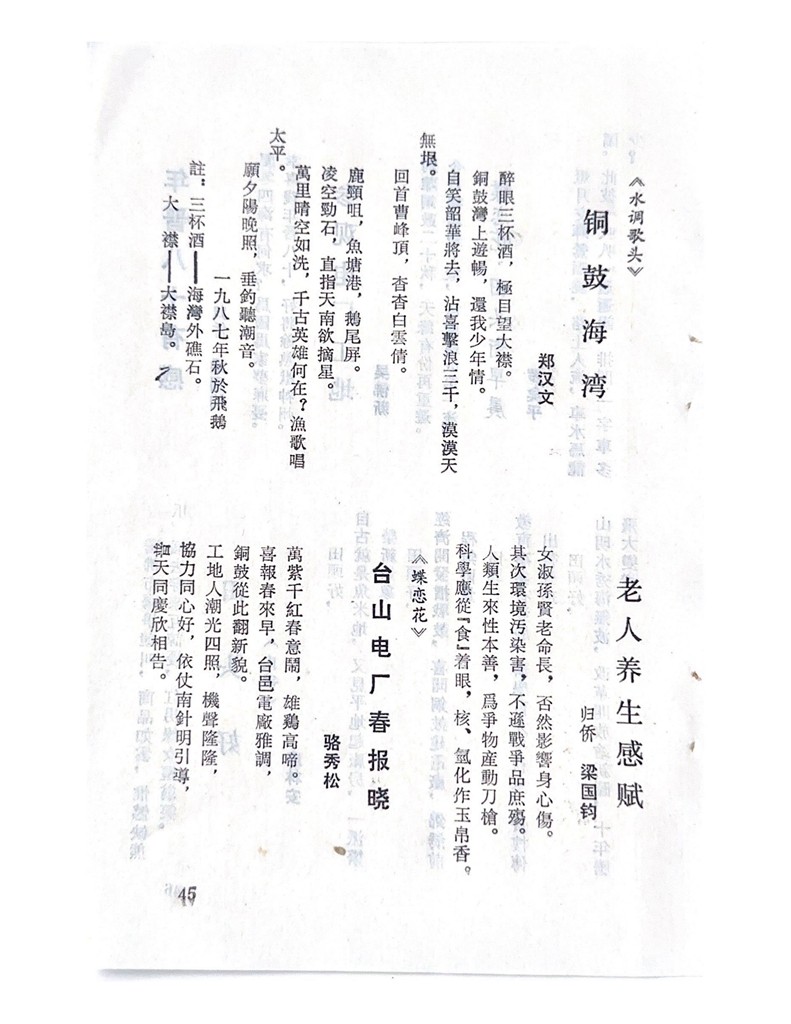 《水调歌头》
铜鼓海湾
郑汉文
醉眼三杯酒，極目望大襟。
銅鼓灣上遊暢，還我少年情。
自笑韶華將去，沾喜擊浪三千，漠漠天
無垠。
回首曹峰頂，杳杳白雲倩。
鹿頸咀，魚塘港，鵝尾屏。
凌空勁石，直指天南欲摘星。
萬里晴空如洗，千古英雄何在？漁歌唱
太平。
願夕陽晚照，垂釣聽潮音。
一九八七年秋於飛鵝
註：三杯酒——海灣外礁石。
大　襟——大襟島。
老人养生感赋
归侨　梁国钧
女淑孫賢老命長，否然影響身心傷。
其次環境汚染害，不遜戰爭品庶殤。
人類生來性本善，爲爭物産動刀槍。
科學應從『食』着眼，核、氫化作玉帛香。
《蝶恋花》
台山电厂春报晓
骆秀松
萬紫千紅春意鬧，雄鷄高啼。
喜報春來早，台邑電廠雅調，
銅鼓從此翻新貌。
工地人潮光四照，機聲隆隆，
協力同心好，依仗南針明引導，
天同慶欣相告。
45